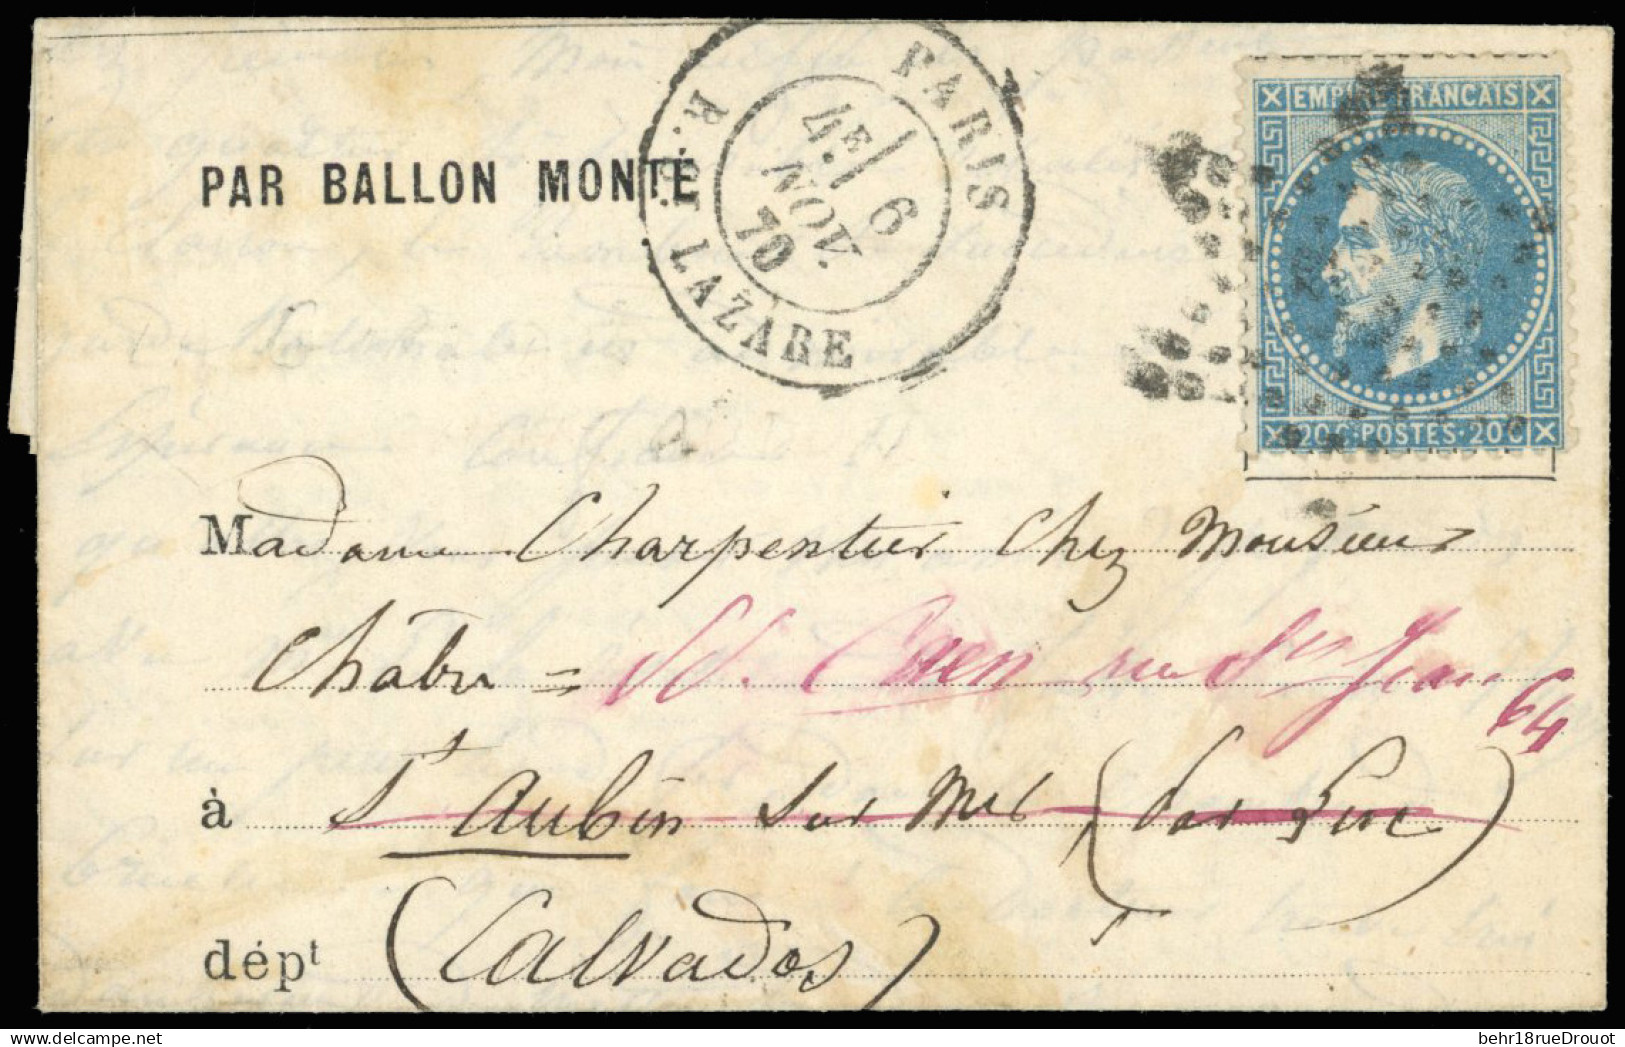 PARIS
R. St LAZARE
4E 6
NOV.
70
PAR BALLON MONTÉ
EMPIRE FRANCAIS
20 C·POSTES·20 C
Madame Charpentier Chez Monsieur
Chabu = Caen rue St Jean
64
à St Aubin sur Mer (par Luc)
dépt (Calvados)
behr18rueDrouot